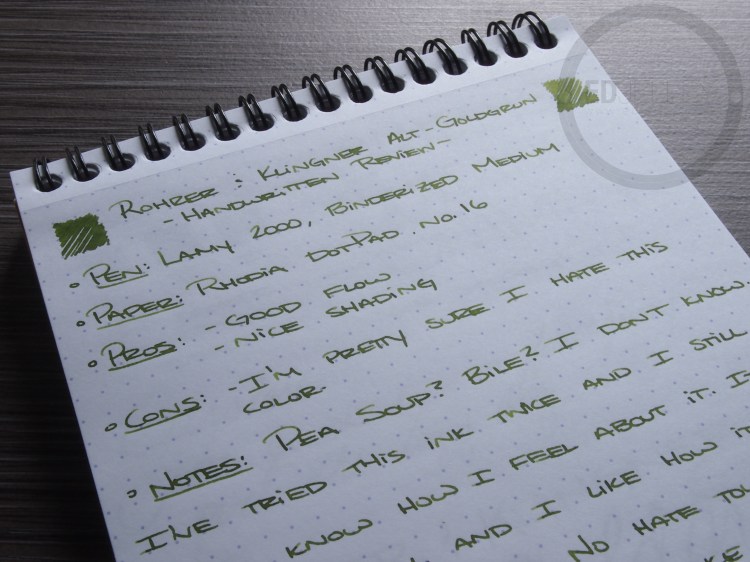 Rohrer & Klingner Alt-Goldgrun
- Handwritten Review -
• Pen: Lamy 2000, Binderized Medium
• Paper: Rhodia DotPad No. 16
• Pros: - Good Flow
- Nice Shading
• Cons: - I'm pretty sure I hate this
color.
• Notes: Pea Soup? Bile? I don't know.
I've tried this ink twice and I still
know how I feel about it. I
and I like how it
No hate